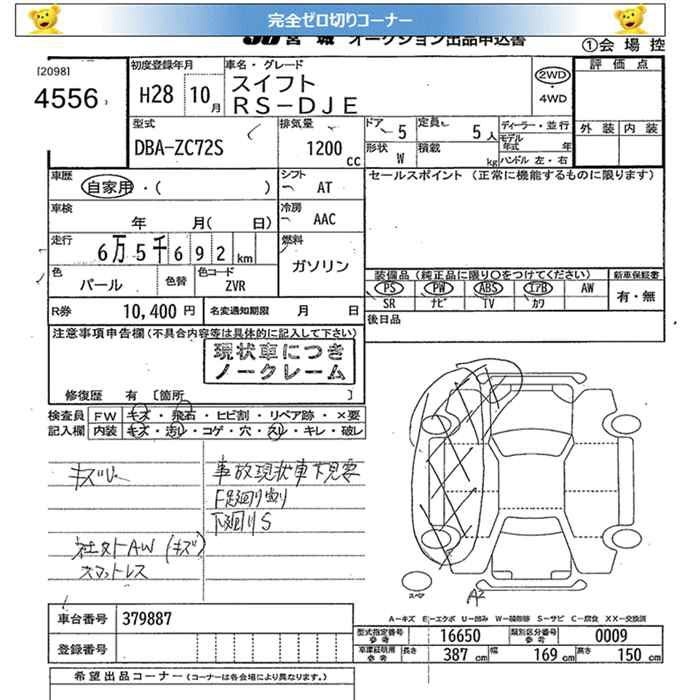 完全ゼロ切りコーナー
JU宮城 オークション出品申込書
①会場控
[2098]
4556
初度登録年月
H28 10月
車名・グレード
スイフト
RS-DJE
2WD
・
4WD
評価点
外装 内装
型式
DBA-ZC72S
排気量
1200 cc
ドア 5
定員 5人
形状 W
積載 kg
ディーラー・並行
モデル年式 年
ハンドル 左・右
車歴
自家用・( )
シフト
AT
セールスポイント (正常に機能するものに限ります)
車検
年 月( 日)
冷房
AAC
走行
6万5千692km
燃料
ガソリン
色
パール
色替
色コード
ZVR
装備品(純正品に限り○をつけてください)
新車保証書
PS PW ABS エアB AW
SR ナビ TV カワ
有・無
R券 10,400円
名変通知期限 月 日
後日品
注意事項申告欄(不具合内容等は具体的に記入して下さい)
現状車につき
ノークレーム
修復歴 有 [箇所 ]
検査員 FW キズ・飛石・ヒビ割・リペア跡・×要
記入欄 内装 キズ・汚レ・コゲ・穴・スレ・キレ・破レ
事故現状車下見要
F足廻り割り
下廻りS
社外AW(キズ)
スペアタイヤレス
スペア
A2
A-キズ E-エクボ U-凹み W-補修跡 S-サビ C-腐食 XX-交換済
車台番号 379887
登録番号
型式指定番号参考 16650
類別区分番号参考 0009
車庫証明用参考 長さ 387cm 幅 169cm 高さ 150cm
希望出品コーナー(コーナーは各会場により異なります。)